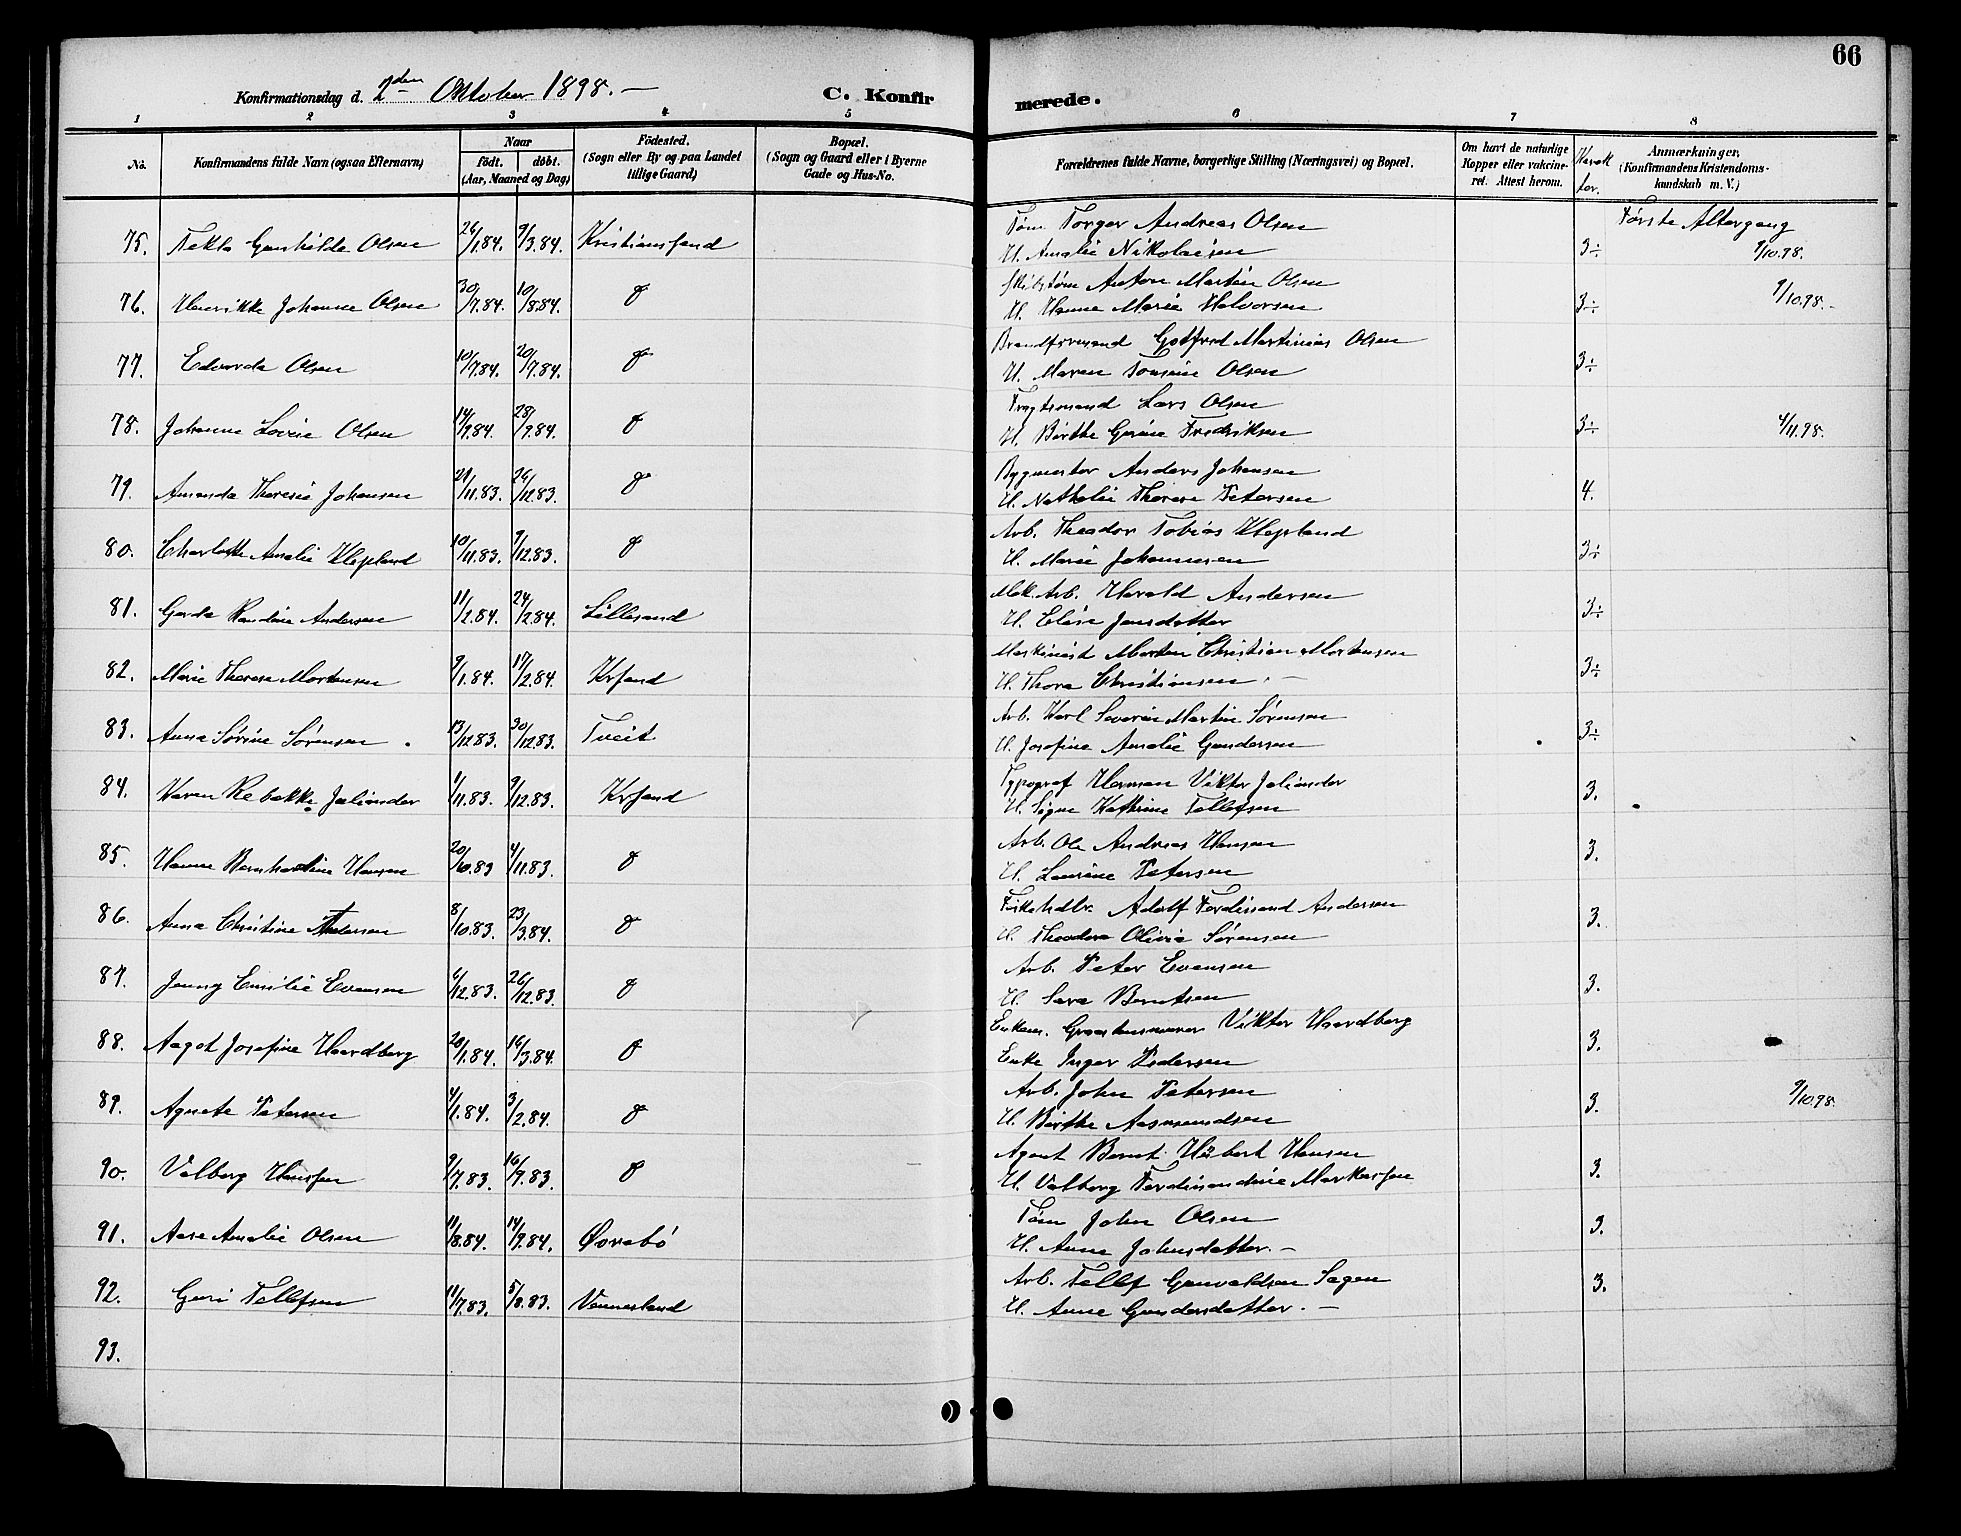 66
Konfirmationsdag d. 2den Oktober 1898. —
C. Konfirmerede.
1 2 3 4 5 6 7 8
No. Konfirmandens fulde Navn (ogsaa Efternavn) Naar födt. döbt. (Aar, Maaned og Dag) Födested. (Sogn eller By og paa Landet tillige Gaard) Bopæl. (Sogn og Gaard eller i Byerne Gade og Hus-No. Forældrenes fulde Navne, borgerlige Stilling (Næringsvei) og Bopæl. Om havt de naturlige Kopper eller vakcineret. Attest herom. Karakter. Anmærkninger, (Konfirmandens Kristendomskundskab m. V.)
Første Altergang
75. Tekla Gunhilde Olsen 26/1.84. 9/3.84. Kristiansand Tøm Torger Andreas Olsen
H. Amalie Nikolaisen 3÷ 9/10.98.
76. Henrikke Johanne Olsen 30/7.84. 10/8.84 Anton Martin Olsen
H. Hanne Marie Halvorsen 3÷ 9/10.98.-
77. Edvarda Olsen 10/7.84. 20/7.84. Brandformand Gotfred Martinius Olsen
H. Maren Tomine Olsen 3÷
78. Johanne Lovise Olsen 14/9.84. 28/9.84. Fragtemand Lars Olsen
H. Birthe Gurine Fredriksen 3÷ 4/11.98.
79. Amanda Theresie Johansen 21/11.83. 26/12.83. Bygmester Anders Johansen
H. Nathalie Therese Petersen 4.
80. Charlotte Amalie Klepland 10/11.83. 9/12.83. Arb. Theodor Tobias Klepland
H. Marie Johannesen 3÷
81. Gerda Randine Andersen 11/2.84. 24/2.84. Lillesand Mek. Arb. Harald Andersen
H. Elise Jensdatter 3÷
82. Marie Therese Mortensen 9/1.84. 17/2.84. Krsand Maskinist Martin Christian Mortensen
H. Thora Christiansen. — 3÷
83. Anna Sørine Sørensen. 13/12.83. 30/12.83. Tveit Arb. Karl Severin Martin Sørensen
H. Josefine Amalie Gundersen 3÷
84. Karen Rebekka Julander 1/11.83. 9/12.83. Krsand Typograf Herman Viktor Julander
H. Signe Kathrine Tellefsen 3.
85. Hanne Bernhardine Hansen 20/10.83 4/11.83. Arb. Ole Andreas Hansen
H. Laurine Petersen 3.
86. Anna Christine Andersen 8/10.83. 23/3.84. Fiskehdlr. Adolf Ferdinand Andersen
H. Theodora Olivia Sørensen 3.
87. Jenny Emilie Evensen 6/12.83. 26/12.83. Arb. Peter Evensen
H. Sara Berntsen 3.
88. Aagot Josefine Haardberg 20/1.84. 16/3.84. Viktor Haardberg
Enke Inger Pedersen 3.
89. Agnete Petersen 4/1.84. 3/2.84. Arb. John Petersen
H. Birthe Aasmundsen 3. 9/10.98.
90. Valborg Hanssen 9/7.83. 16/9.83. Agent Bernt Hansen
H. Valborg Ferdinandine Markussen 3.
91. Aase Amalie Olsen 11/8.84. 14/9.84. Øvrebö Tøm John Olsen
H. Anne Johnsdatter. — 3.
92. Guri Tellefsen 11/7.83. 5/8.83. Vennesland Arb. Tellef Gunvaldsen Sagen
H. Anne Gundersdatter. — 3.
93.